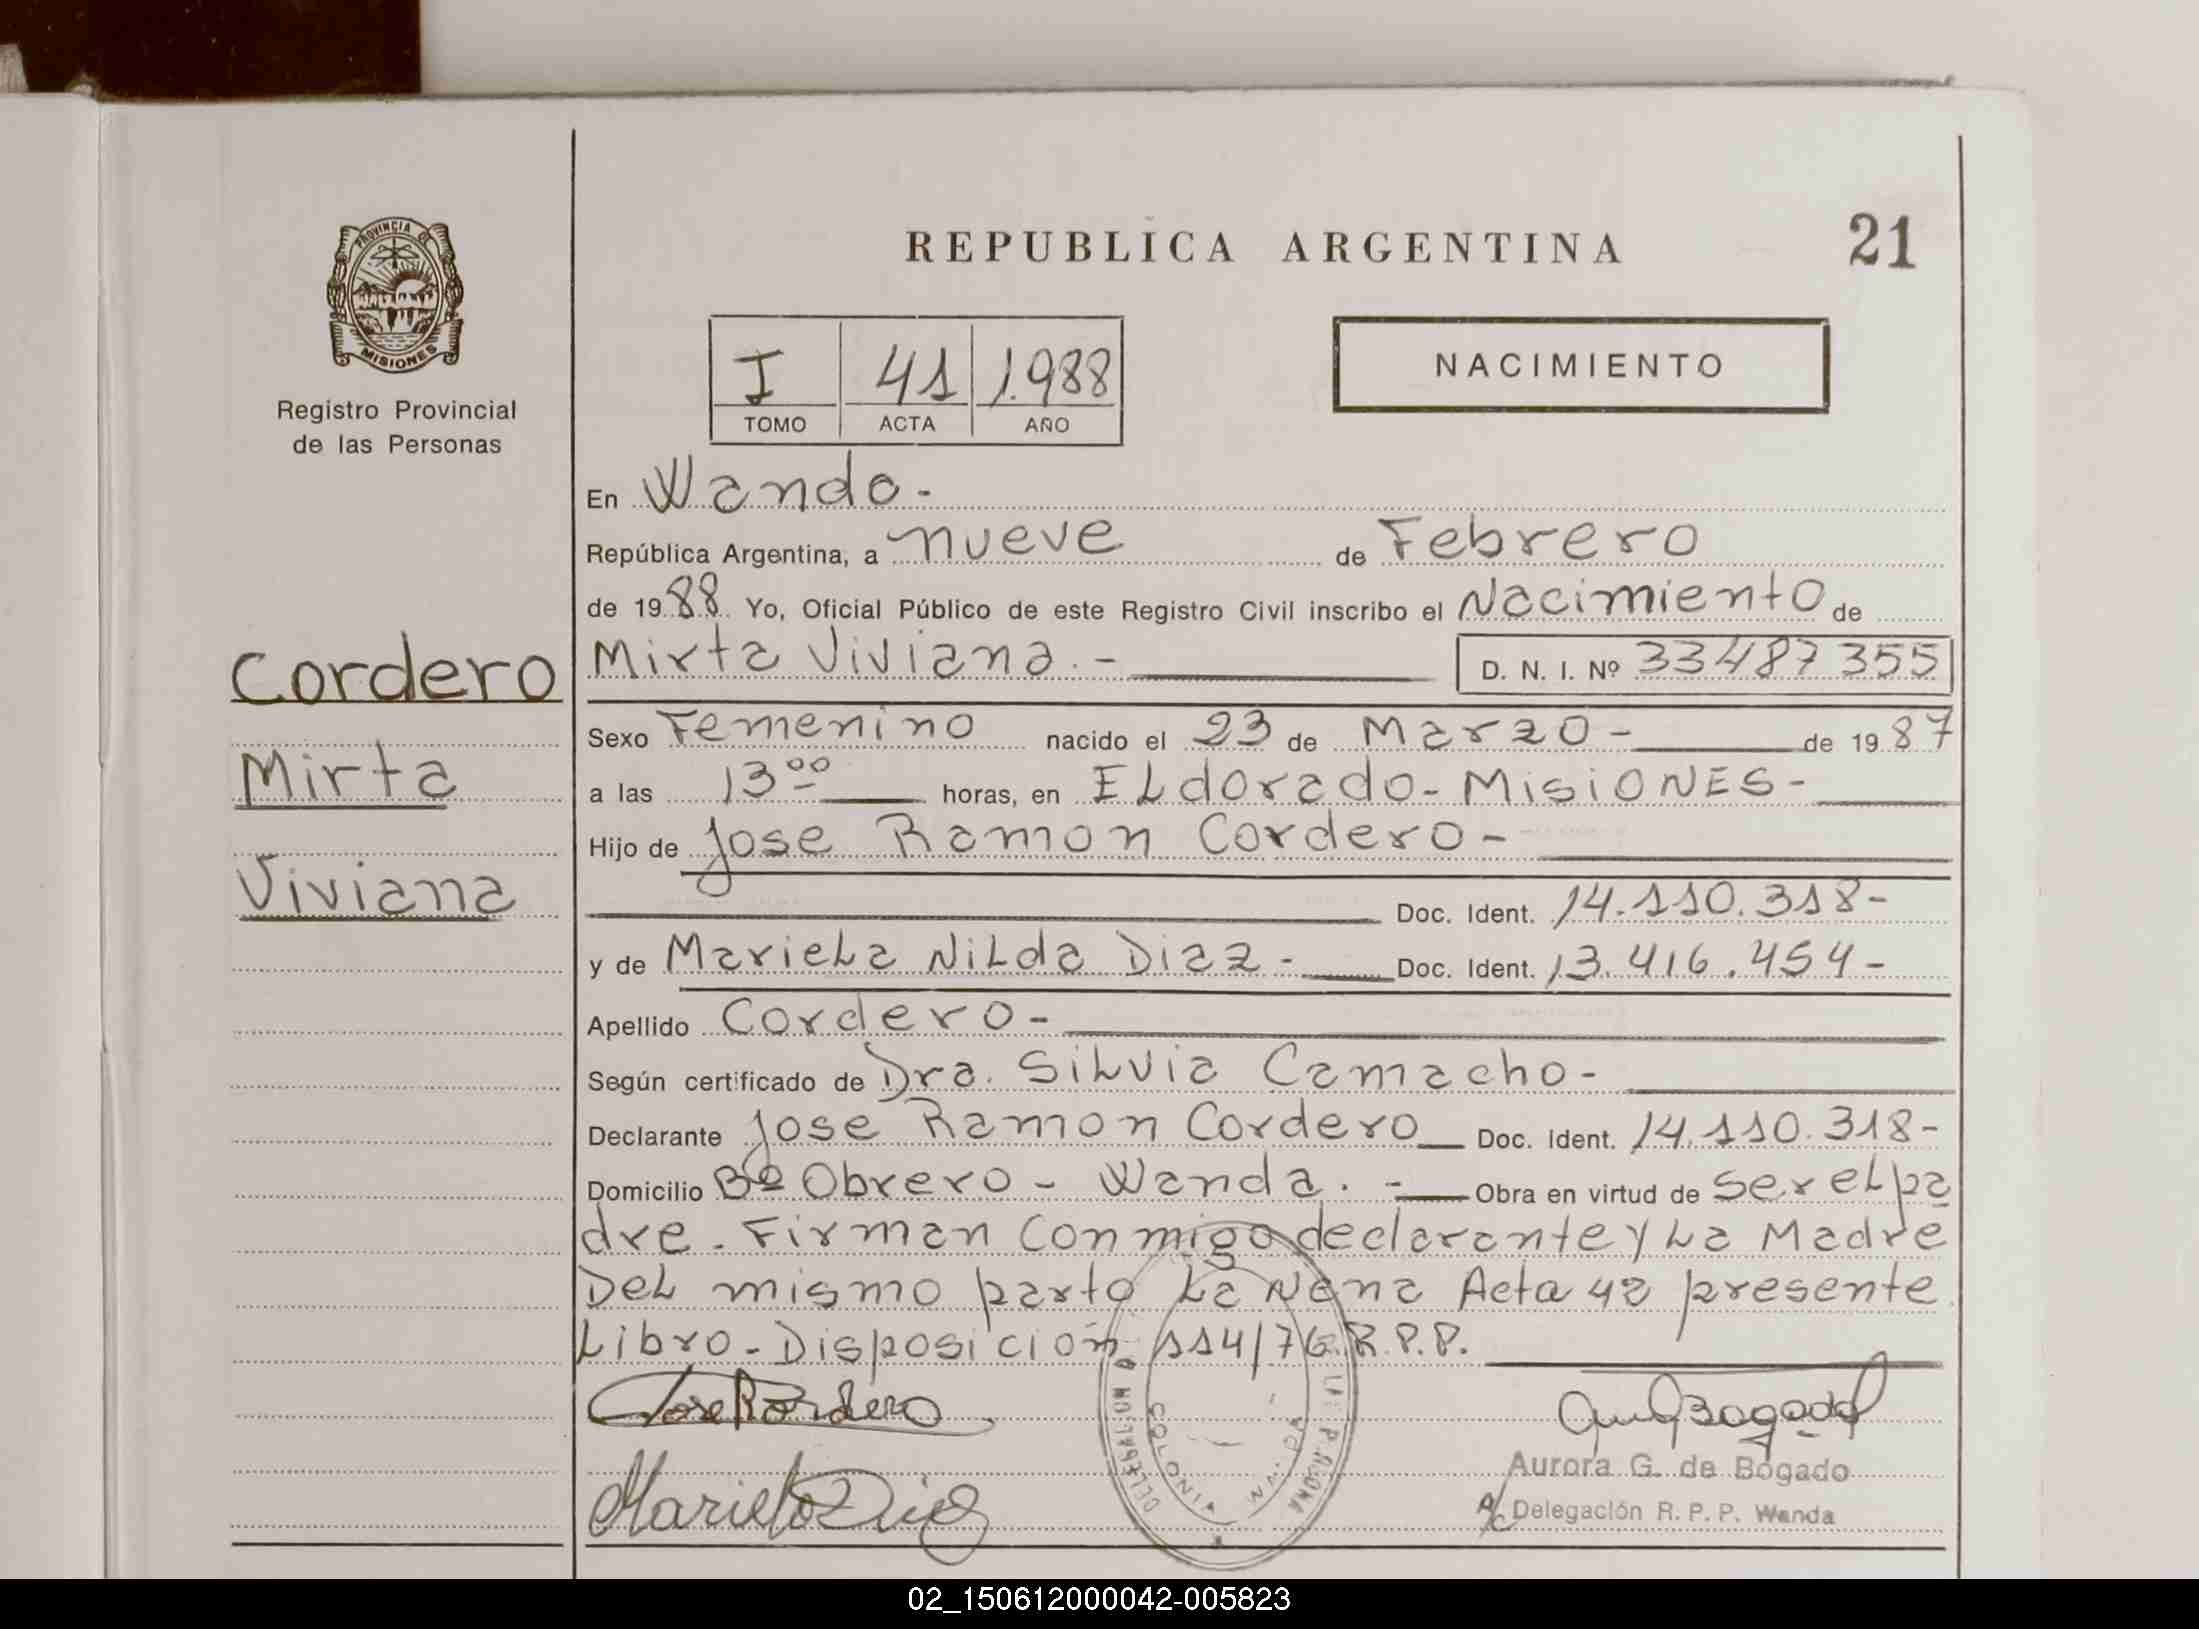 REPUBLICA ARGENTINA
21
PROVINCIA DE
MISIONES
Registro Provincial
de las Personas
I 41 1.988
TOMO ACTA AÑO
NACIMIENTO
En Wanda.-
República Argentina, a nueve de Febrero
de 1988 Yo, Oficial Público de este Registro Civil inscribo el Nacimiento de
Cordero
Mirta
Viviana
Mirta Viviana.-
D. N. I. Nº 33487355
Sexo Femenino nacido el 23 de Marzo- de 1987
a las 13 00 horas, en ELdorado-MisiONES-
Hijo de Jose Ramon Cordero-
Doc. Ident. 14.110.318-
y de MarieLa NiLda Diaz- Doc. Ident. 13.416.454-
Apellido Cordero-
Según certificado de Dra. SiLvia Camacho-
Declarante Jose Ramon Cordero Doc. Ident. 14.110.318-
Domicilio Bº Obrero - Wanda.- Obra en virtud de ser eL pa
dre. Firman Conmigo declarante y La Madre
DeL mismo parto La Nena Acta 42 presente
Libro-Disposición 114/76.R.P.P.
Jose R Cordero
Mariela Diaz
Bogado
Aurora G. de Bogado
A/c Delegación R. P. P. Wanda
02_150612000042-005823